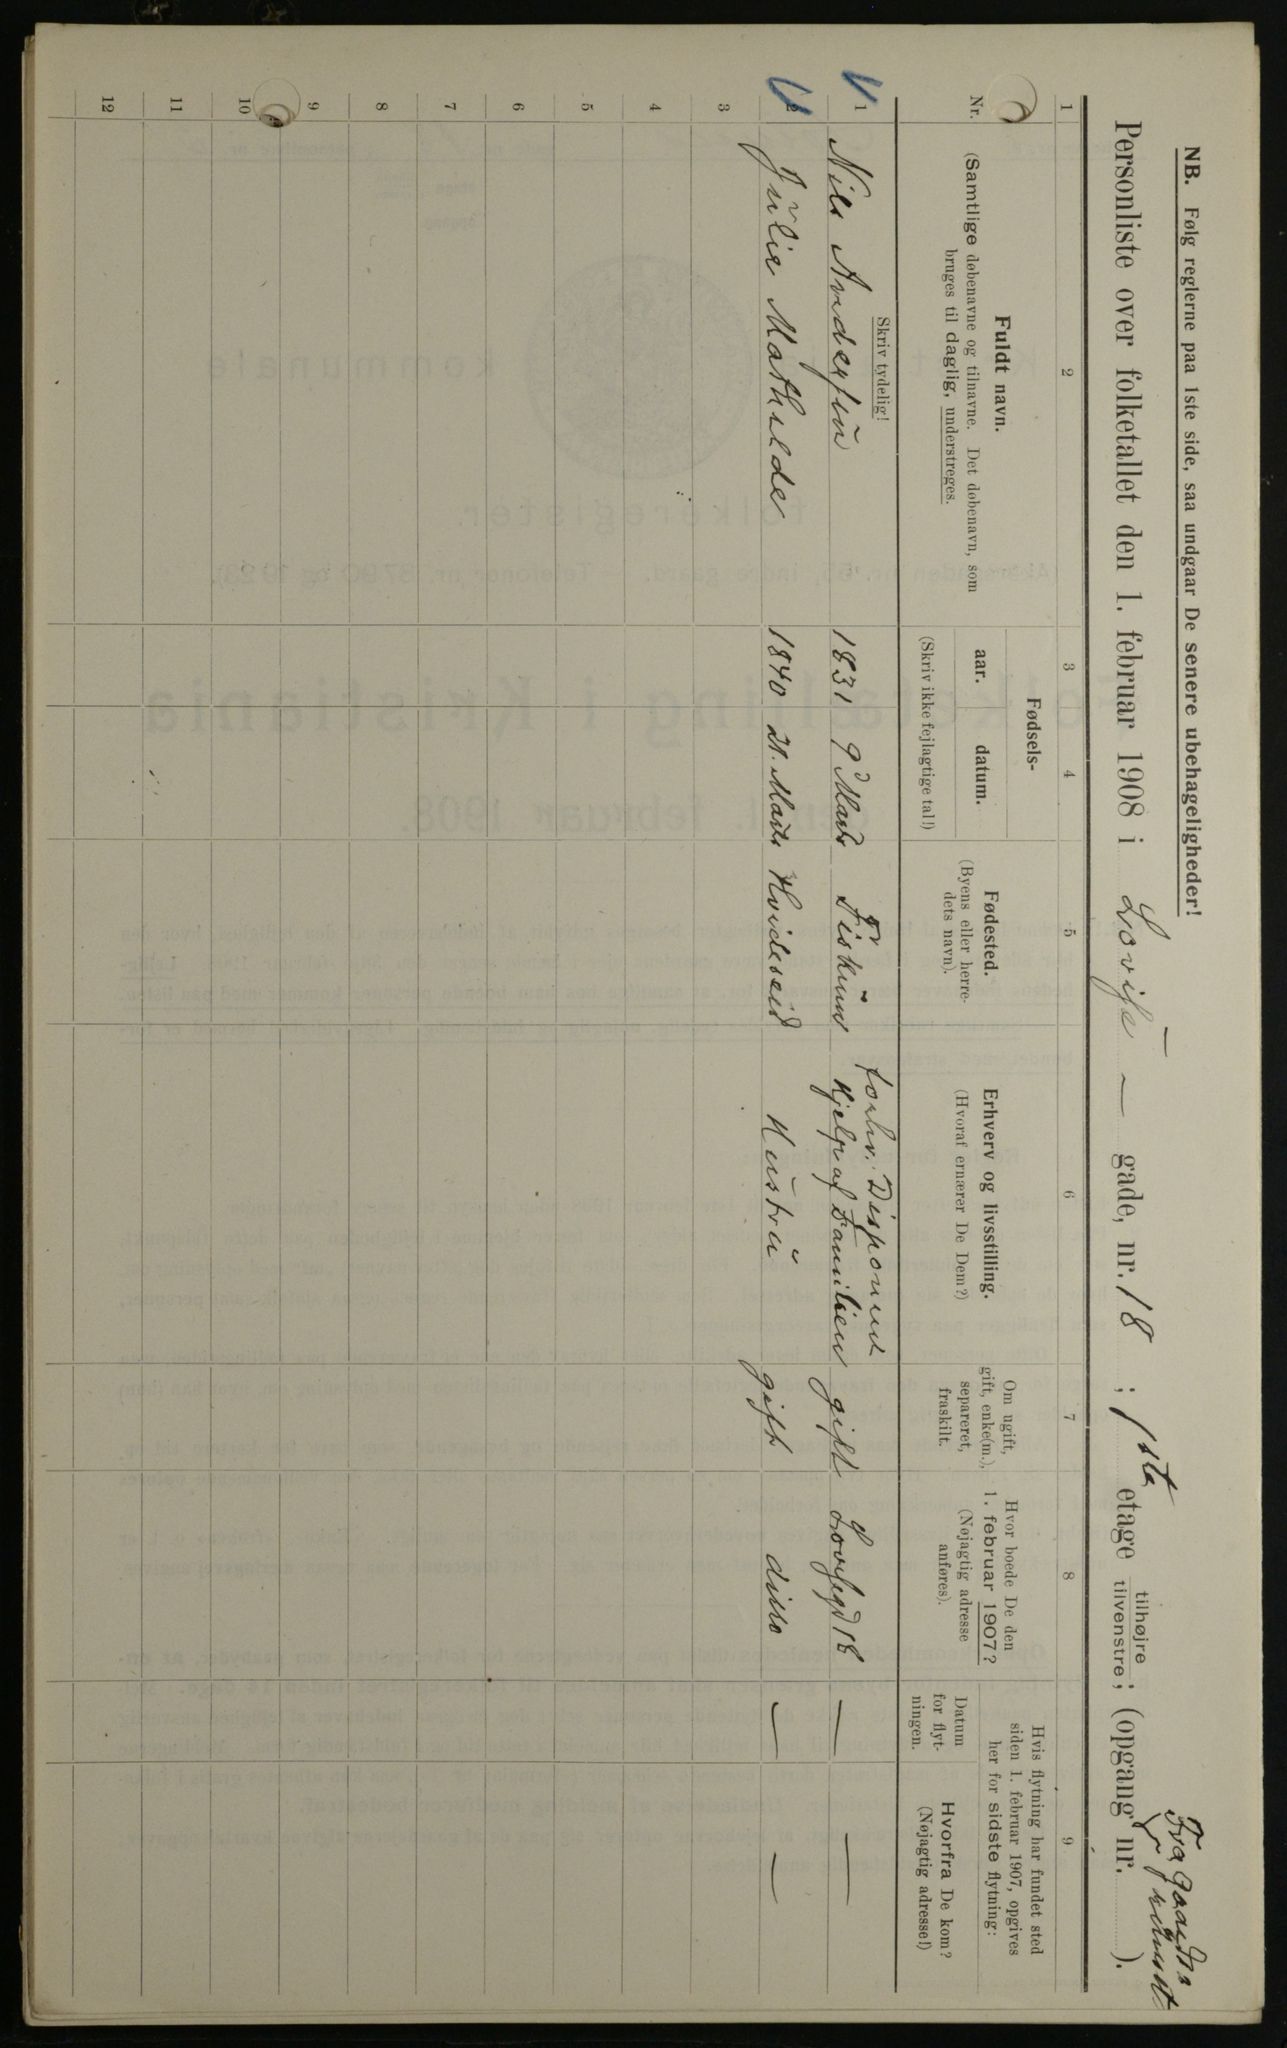 NB. Følg reglerne paa 1ste side, saa undgaar De senere ubehageligheder!
Personliste over folketallet den 1. februar 1908 i Lovise — gade, nr. 18 ; 1ste etage tilhøjre tilvenstre; (opgang nr. ).
Fra Gaards
1 2 3 4 5 6 7 8 9
Nr.
Fuldt navn.
(Samtlige døbenavne og tilnavne. Det døbenavn, som
bruges til daglig, understreges.
Skriv tydelig!
Fødsels-
aar. datum.
(Skriv ikke fejlagtige tal!)
Fødested.
(Byens eller herre-
dets navn).
Erhverv og livsstilling.
(Hvoraf ernærer De Dem?)
Om ugift,
gift, enke(m.),
separeret,
fraskilt.
Hvor boede De den
1. februar 1907?
(Nøjagtig adresse
anføres).
Hvis flytning har fundet sted
siden 1. februar 1907, opgives
her for sidste flytning:
Datum
for flyt-
ningen.
Hvorfra De kom?
(Nøjagtig adresse!)
forhv. Disponent
1 Nils Andersen 1831 9 Marts Fiskum Hjelp af Familien gift Lovisegd 18 — —
2 Julie Mathilde 1840 21. Marts Hvideseid Hustru gift ditto — —
3
4
5
6
7
8
9
10
11
12